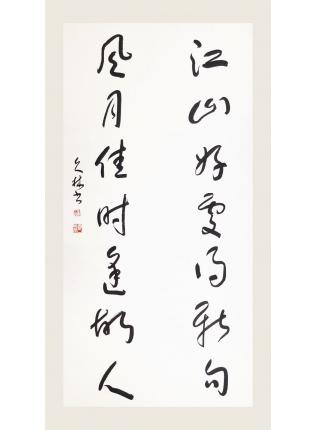 江山好處得新句
風月佳時逢故人
久林書